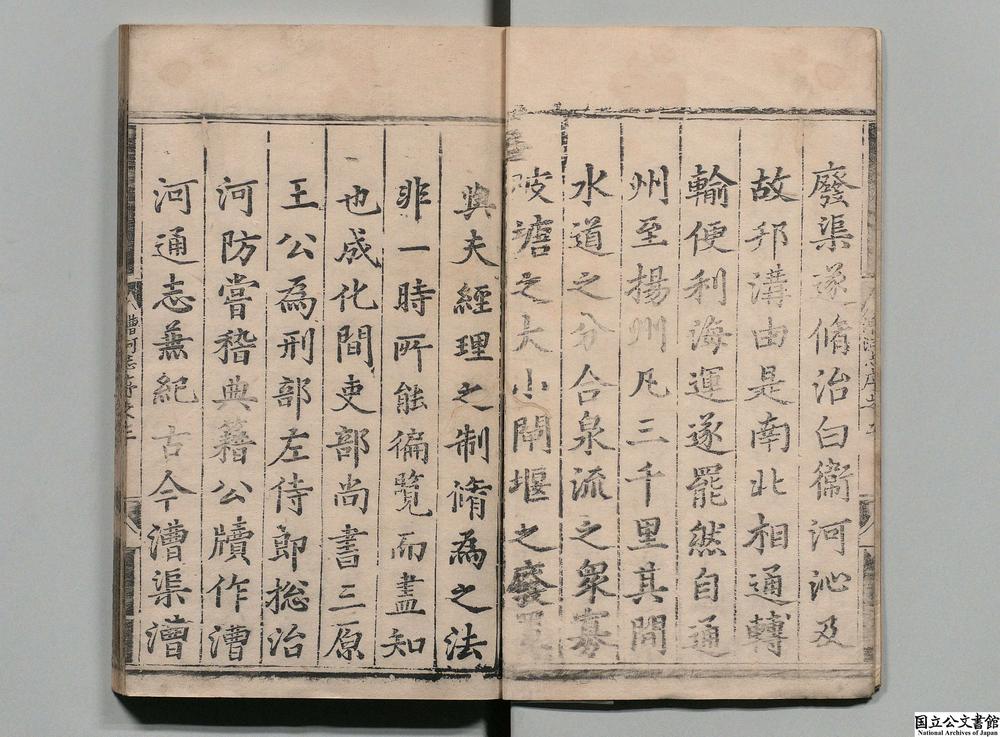 廢渠遂脩治白衞河沁及
故邗溝由是南北相通轉
輸便利海運遂罷然自通
州至揚州凡三千里其間
水道之分合泉流之衆寡
陂塘之大小閘堰之廢置
與夫經理之制脩爲之法
非一時所能徧覽而盡知
也成化間吏部尚書三原
王公為刑部左侍郎總治
河防嘗稽典籍公牘作漕
河通志兼紀古今漕渠漕
漕河志序之三
国立公文書館
National Archives of Japan